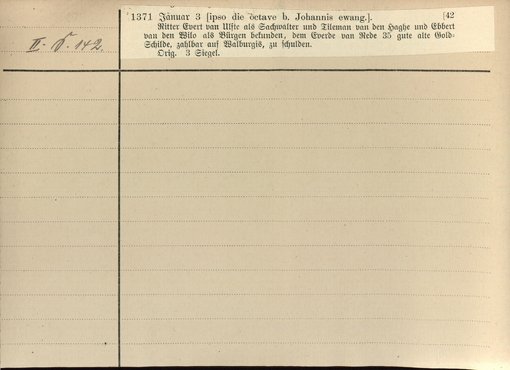 1371 Januar 3 [ipso die octave b. Johannis ewang.]. [42
Ritter Evert van Ulfte als Sachwalter und Tileman van den Haghe und Ebbert
van den Wilo als Bürgen bekunden, dem Everde van Rede 35 gute alte Gold-
Schilde, zahlbar auf Walburgis, zu schulden.
Orig. 3 Siegel.
II. 142.